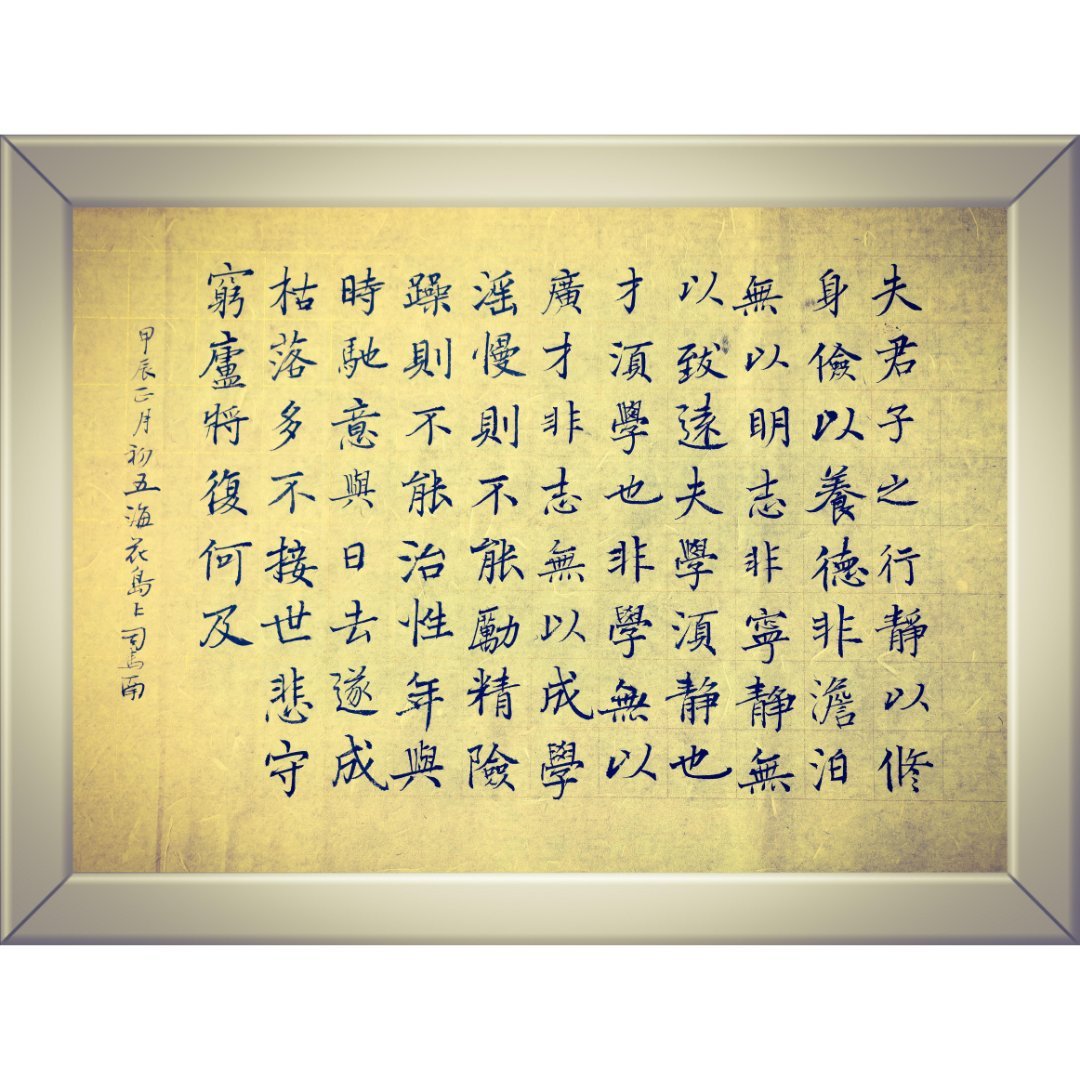 夫君子之行靜以修
身儉以養德非澹泊
無以明志非寧靜無
以致遠夫學須静也
才須學也非學無以
廣才非志無以成學
淫慢則不能勵精險
躁則不能治性年與
時馳意與日去遂成
枯落多不接世悲守
窮廬將復何及
甲辰正月初五海花島上